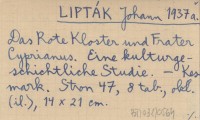 LIPTÁK Johann 1937a.
Das Rote Kloster und Frater
Cyprianus. Eine kulturge-
schichtliche Studie. – Kes-
mark. Stron 47, 8 tab., okl.
(il.), 14 x 21 cm.